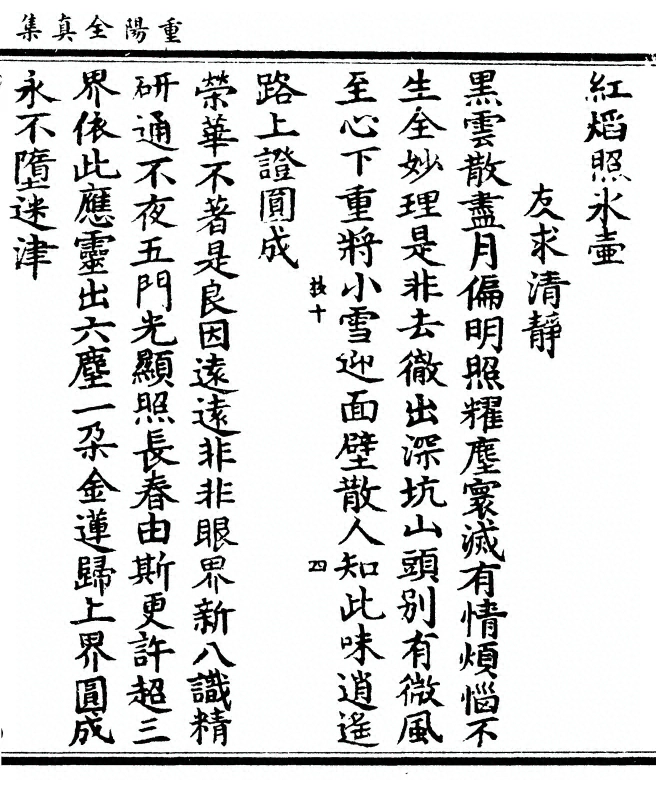 重陽全真集
紅焰照氷壷
友求清靜
黒雲散盡月偏明照耀塵寰滅有情煩惱不
生全妙理是非去徹出深坑山頭别有微風
至心下重將小雪迎面壁散人知此味逍遙
枝十
四
路上證圓成
榮華不著是良因遠遠非非眼界新八識精
研通不夜五門光顯照長春由斯更許超三
界依此應靈出六塵一朶金蓮歸上界圓成
永不墮迷津